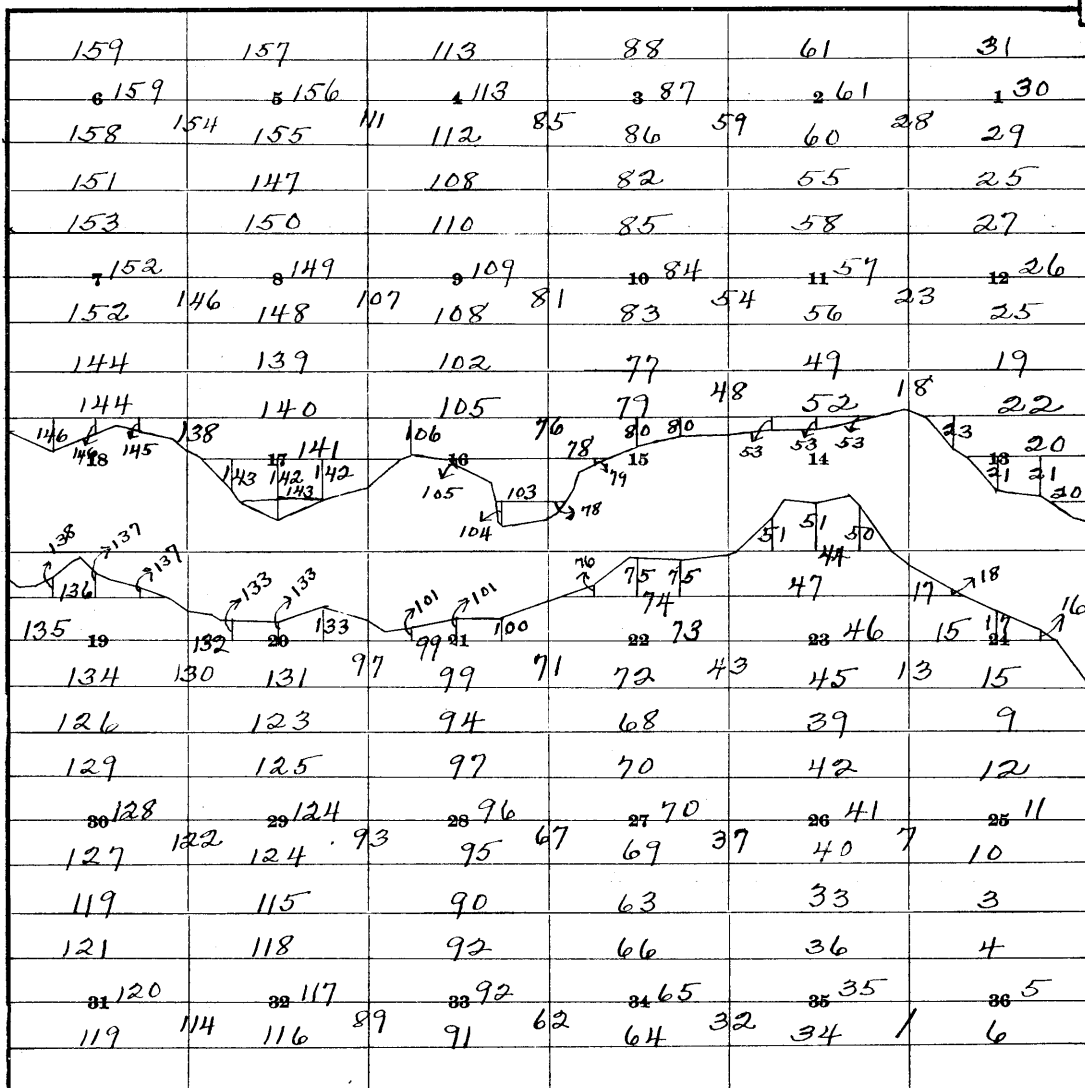 159 157 113 88 61 31
6 159 5 156 4 113 3 87 2 61 1 30
158 154 155 111 112 85 86 59 60 28 29
151 147 108 82 55 25
153 150 110 85 58 27
7 152 8 149 9 109 10 84 11 57 12 26
152 146 148 107 108 81 83 54 56 23 25
144 139 102 77 49 19
144 140 105 79 48 52 18 22
146 145 138 106 76 80 80 53 53 53 23
18 17 141 16 78 15 14 13 20
143 142 142 105 79 21 21
143 103 20
104 78
138 137 51 51 50
137 133 133 76 75 75 44 18
136 101 101 74 47 17 16
135 19 132 20 133 99 21 100 22 73 23 46 15 17 24
134 130 131 97 99 71 72 43 45 13 15
126 123 94 68 39 9
129 125 97 70 42 12
30 128 29 124 28 96 27 70 26 41 25 11
127 122 124 93 95 67 69 37 40 7 10
119 115 90 63 33 3
121 118 92 66 36 4
31 120 32 117 33 92 34 65 35 35 36 5
119 114 116 89 91 62 64 32 34 1 6